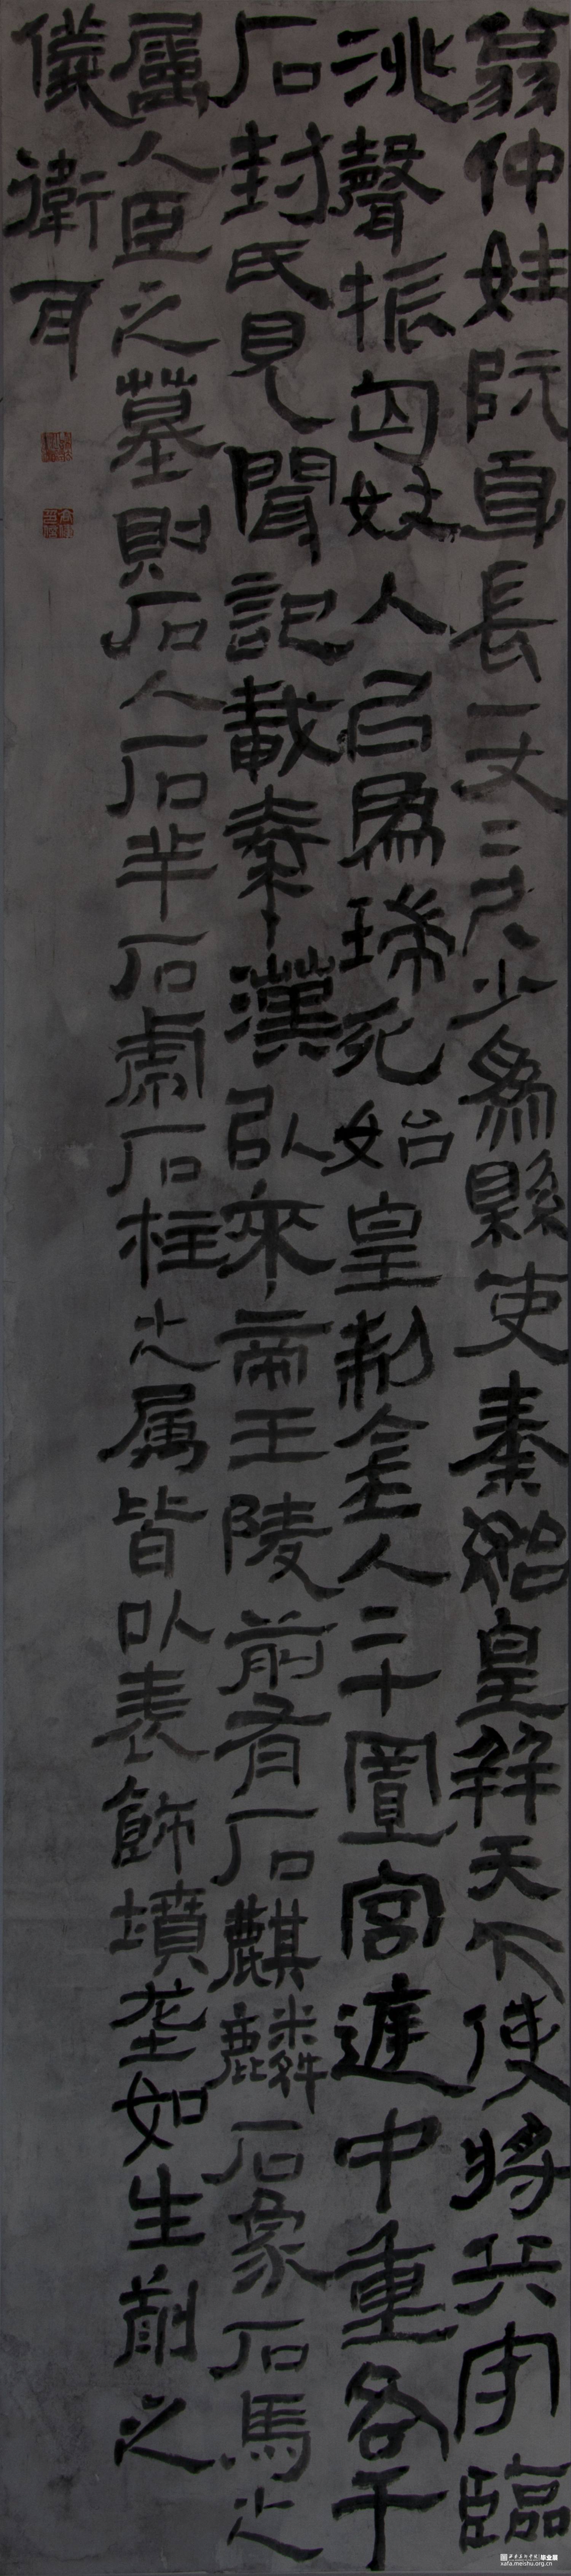 翁仲姓阮身長一丈二尺少為縣吏秦始皇并天下使將兵守臨
洮聲振匈奴人以為瑞死始皇制金人二十置宮庭中重各千
石封氏見聞記載秦漢以來帝王陵前有石麒麟石象石馬之
屬人臣之墓則石人石羊石虎石柱之属皆以表飾墳壟如生前之
儀衛耳
西安美术学院 毕业展
xafa.meishu.org.cn